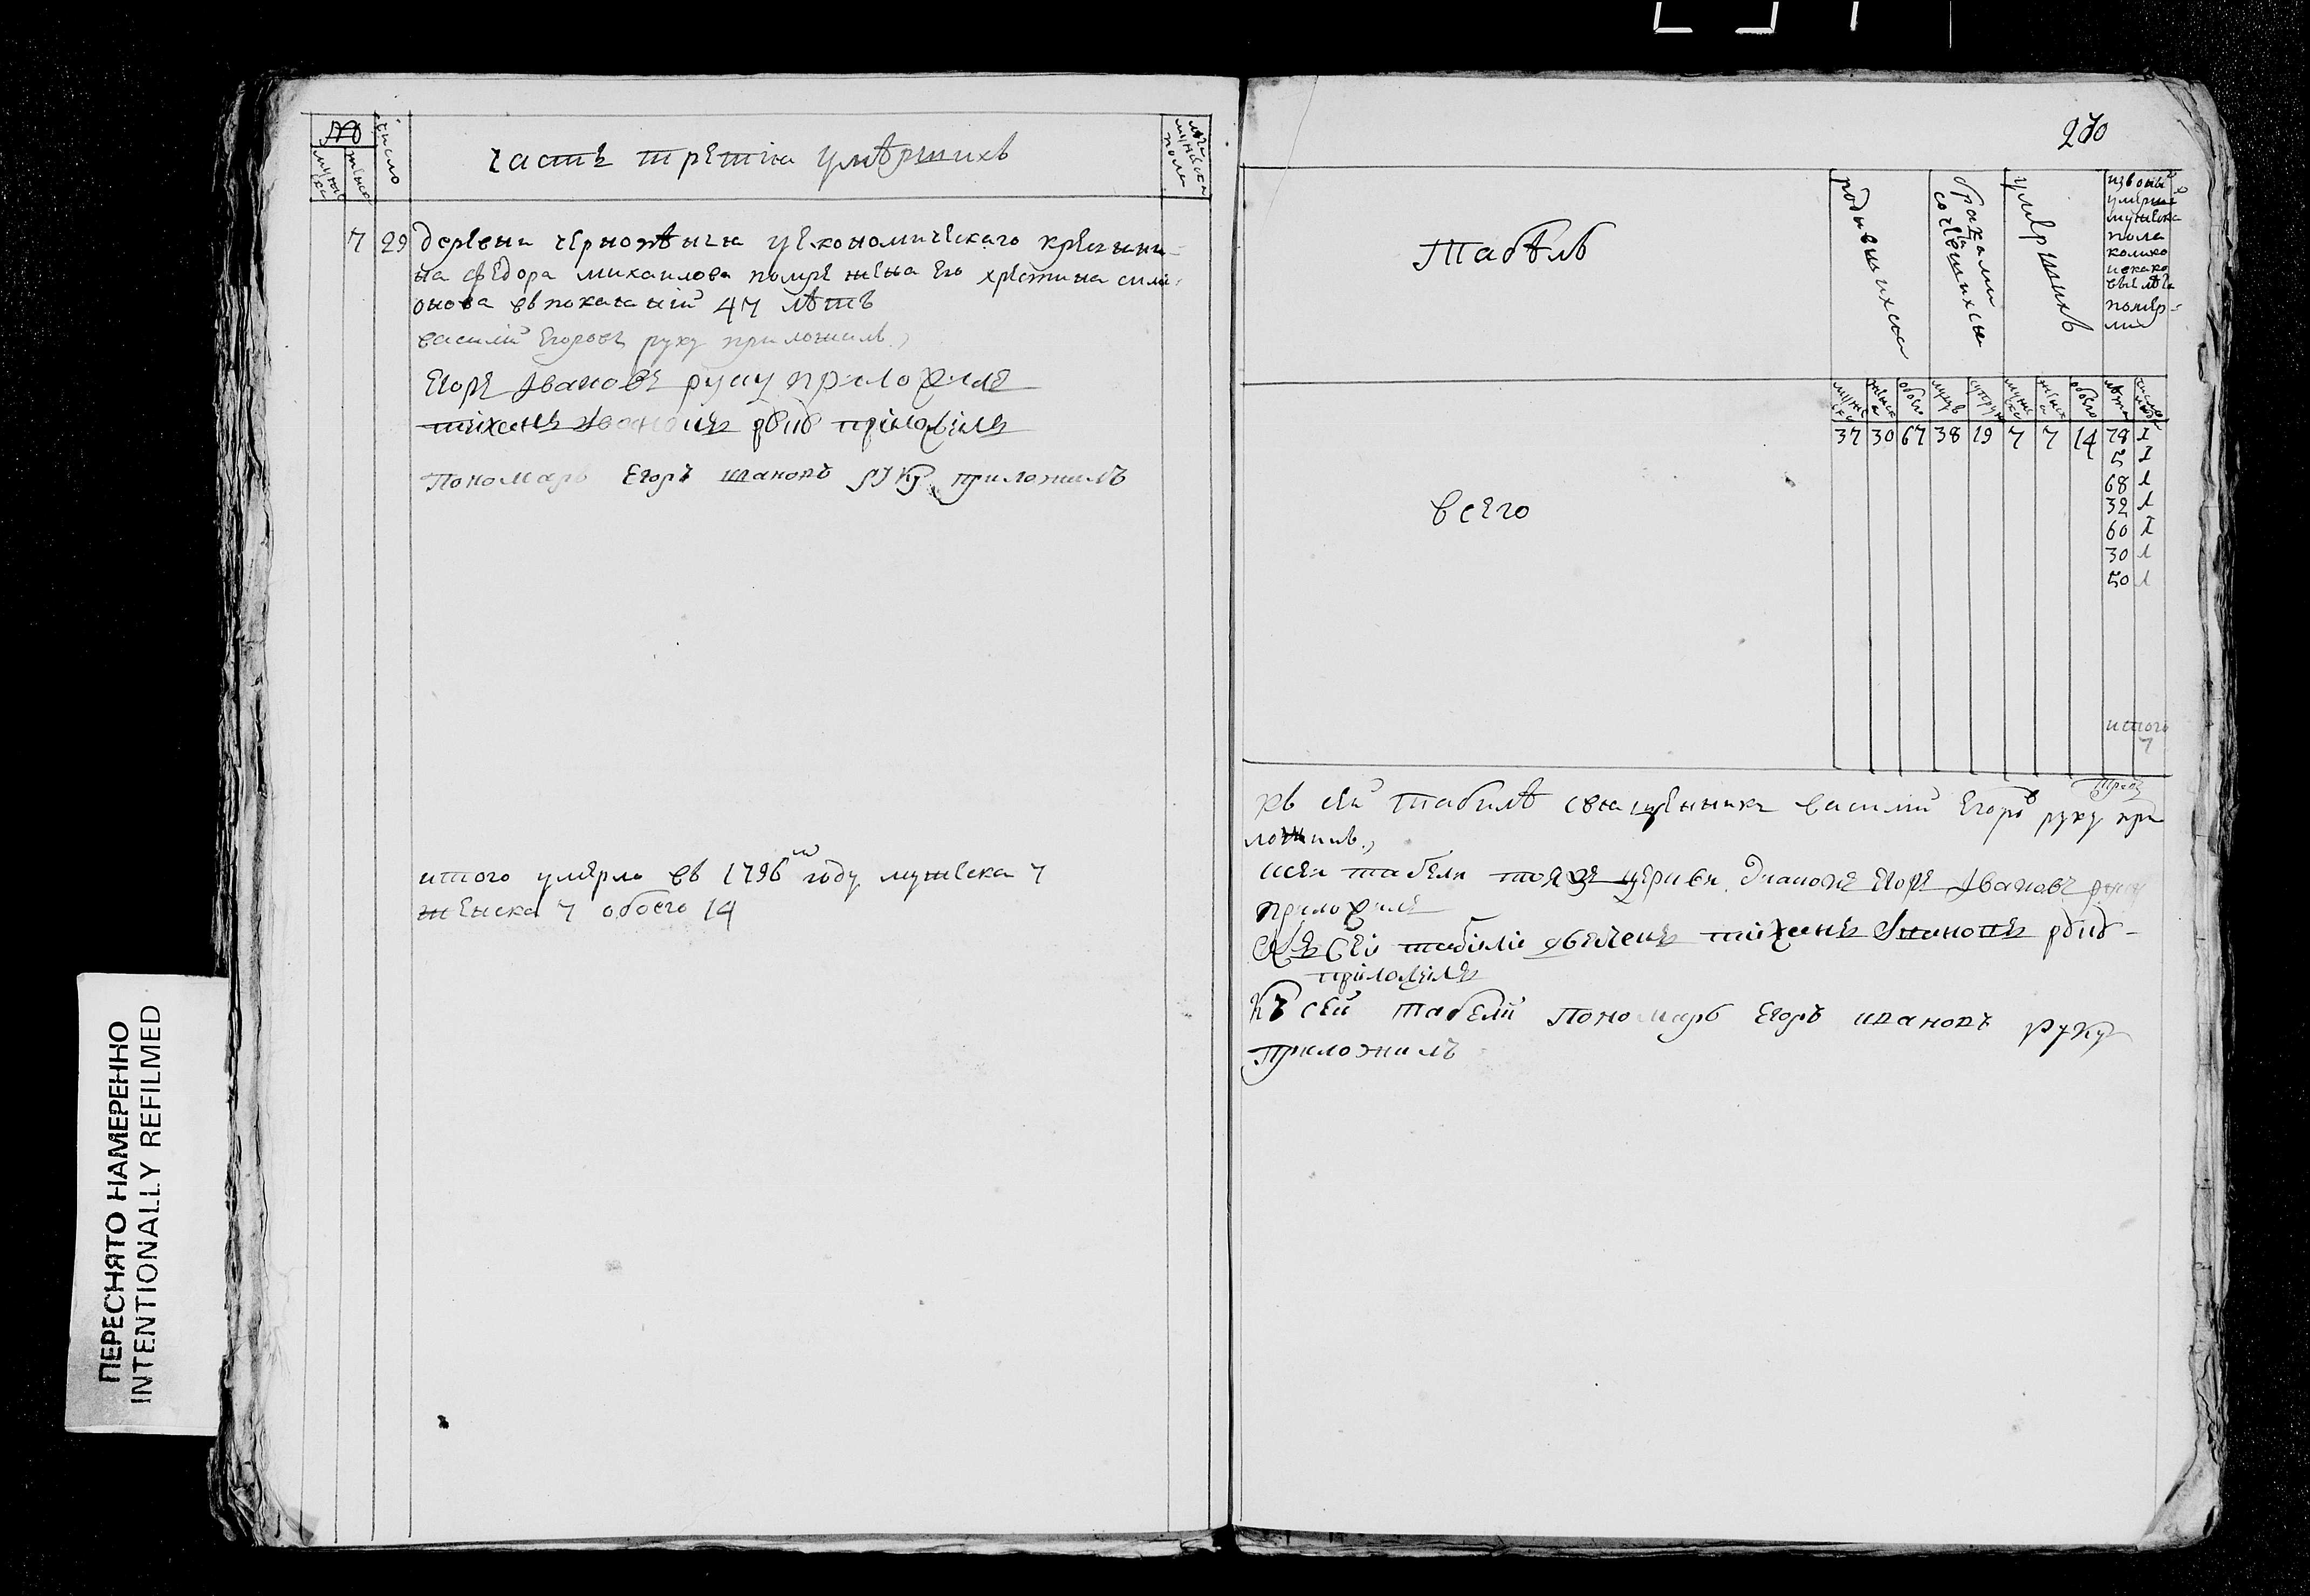 №
мужеска
женска
число
часть третiя умѣршихъ
лѣта мужеска пола
7 29 деревни чернопѣнья у економическаго крестьяни-
на федора михаилова помре жена его християна сими-
онова въ покаянiй 47 лѣтъ
василiй Егоровъ руку приложилъ
Егоръ Ивановъ руку приложилъ
тiханъ Ивановъ руку прiложiлъ
Пономарь Егоръ ивановъ руку приложилъ
итого умерло въ 1796м году мужеска 7
женска 7 обоего 14
230
Табѣль
родившихся
браками сочетавшихся
умершихъ
умерших
мужеска
пола
колико
помер-
ли
мужеска
женска
обоего
мужеска
женска
обоего
лѣта
всего
37 30 67 38 19 7 7 14 78 1
5 1
68 1
32 1
60 1
30 1
50 1
итого
7
къ сей табилѣ священникъ василiй Егоровъ руку при
ложилъ
табели тояже церкви диаконъ Егоръ Ивановъ руку
приложилъ
тiханъ Ивановъ руку
прiложiлъ
Къ сей табелй Пономарь Егоръ ивановъ руку
Приложилъ
ПЕРЕСНЯТО НАМЕРЕННО
INTENTIONALLY REFILMED